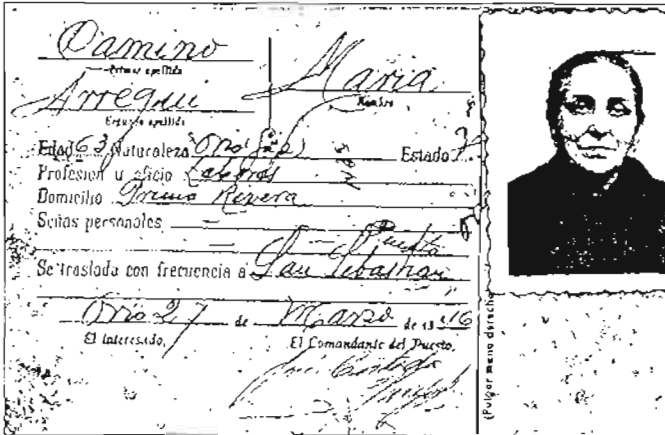 Camino
Primer apellido
María
Nombre
Arregui
Segundo apellido
Edad 63 Naturaleza Orio Estado
Profesion u oficio Labores
Domicilio Primo Rivera
Señas personales
Se traslada con frecuencia a San Sebastian
Orio 27 de Marzo de 19
El interesado, El Comandante del Puesto,
(Pulgar mano derecha)